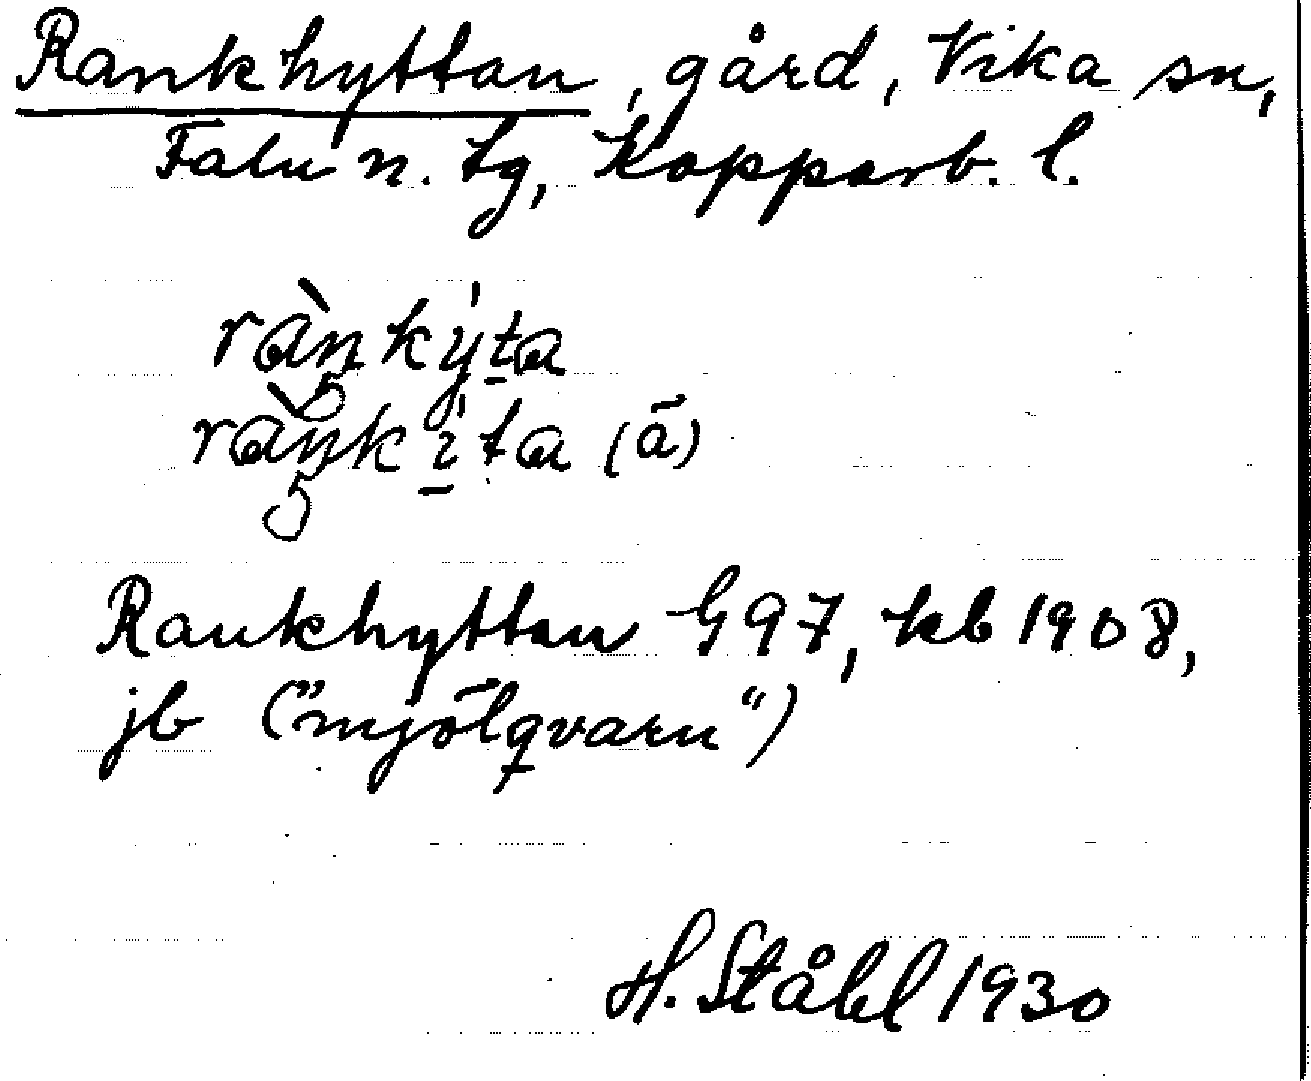 Rankhyttan, gård, Vika sn,
Falu n. tg, Kopparb. l.
ràŋky̍ta
ràŋkı̍ta (ā)
Rankhyttan G97, kb 1908,
jb ("mjölqvarn")
H. Ståhl 1930